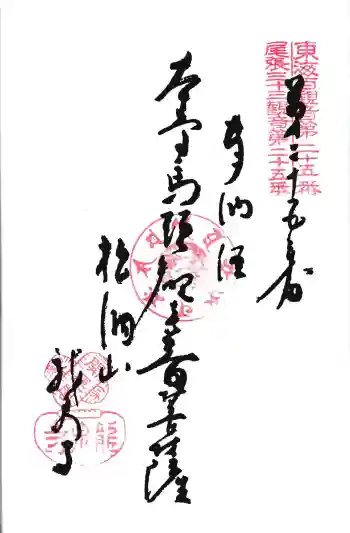 東海百観音第二十五番
尾張三十三観音第二十五番
第二十五番
奉納経
本尊馬頭観世音菩薩
松洞山
龍泉寺